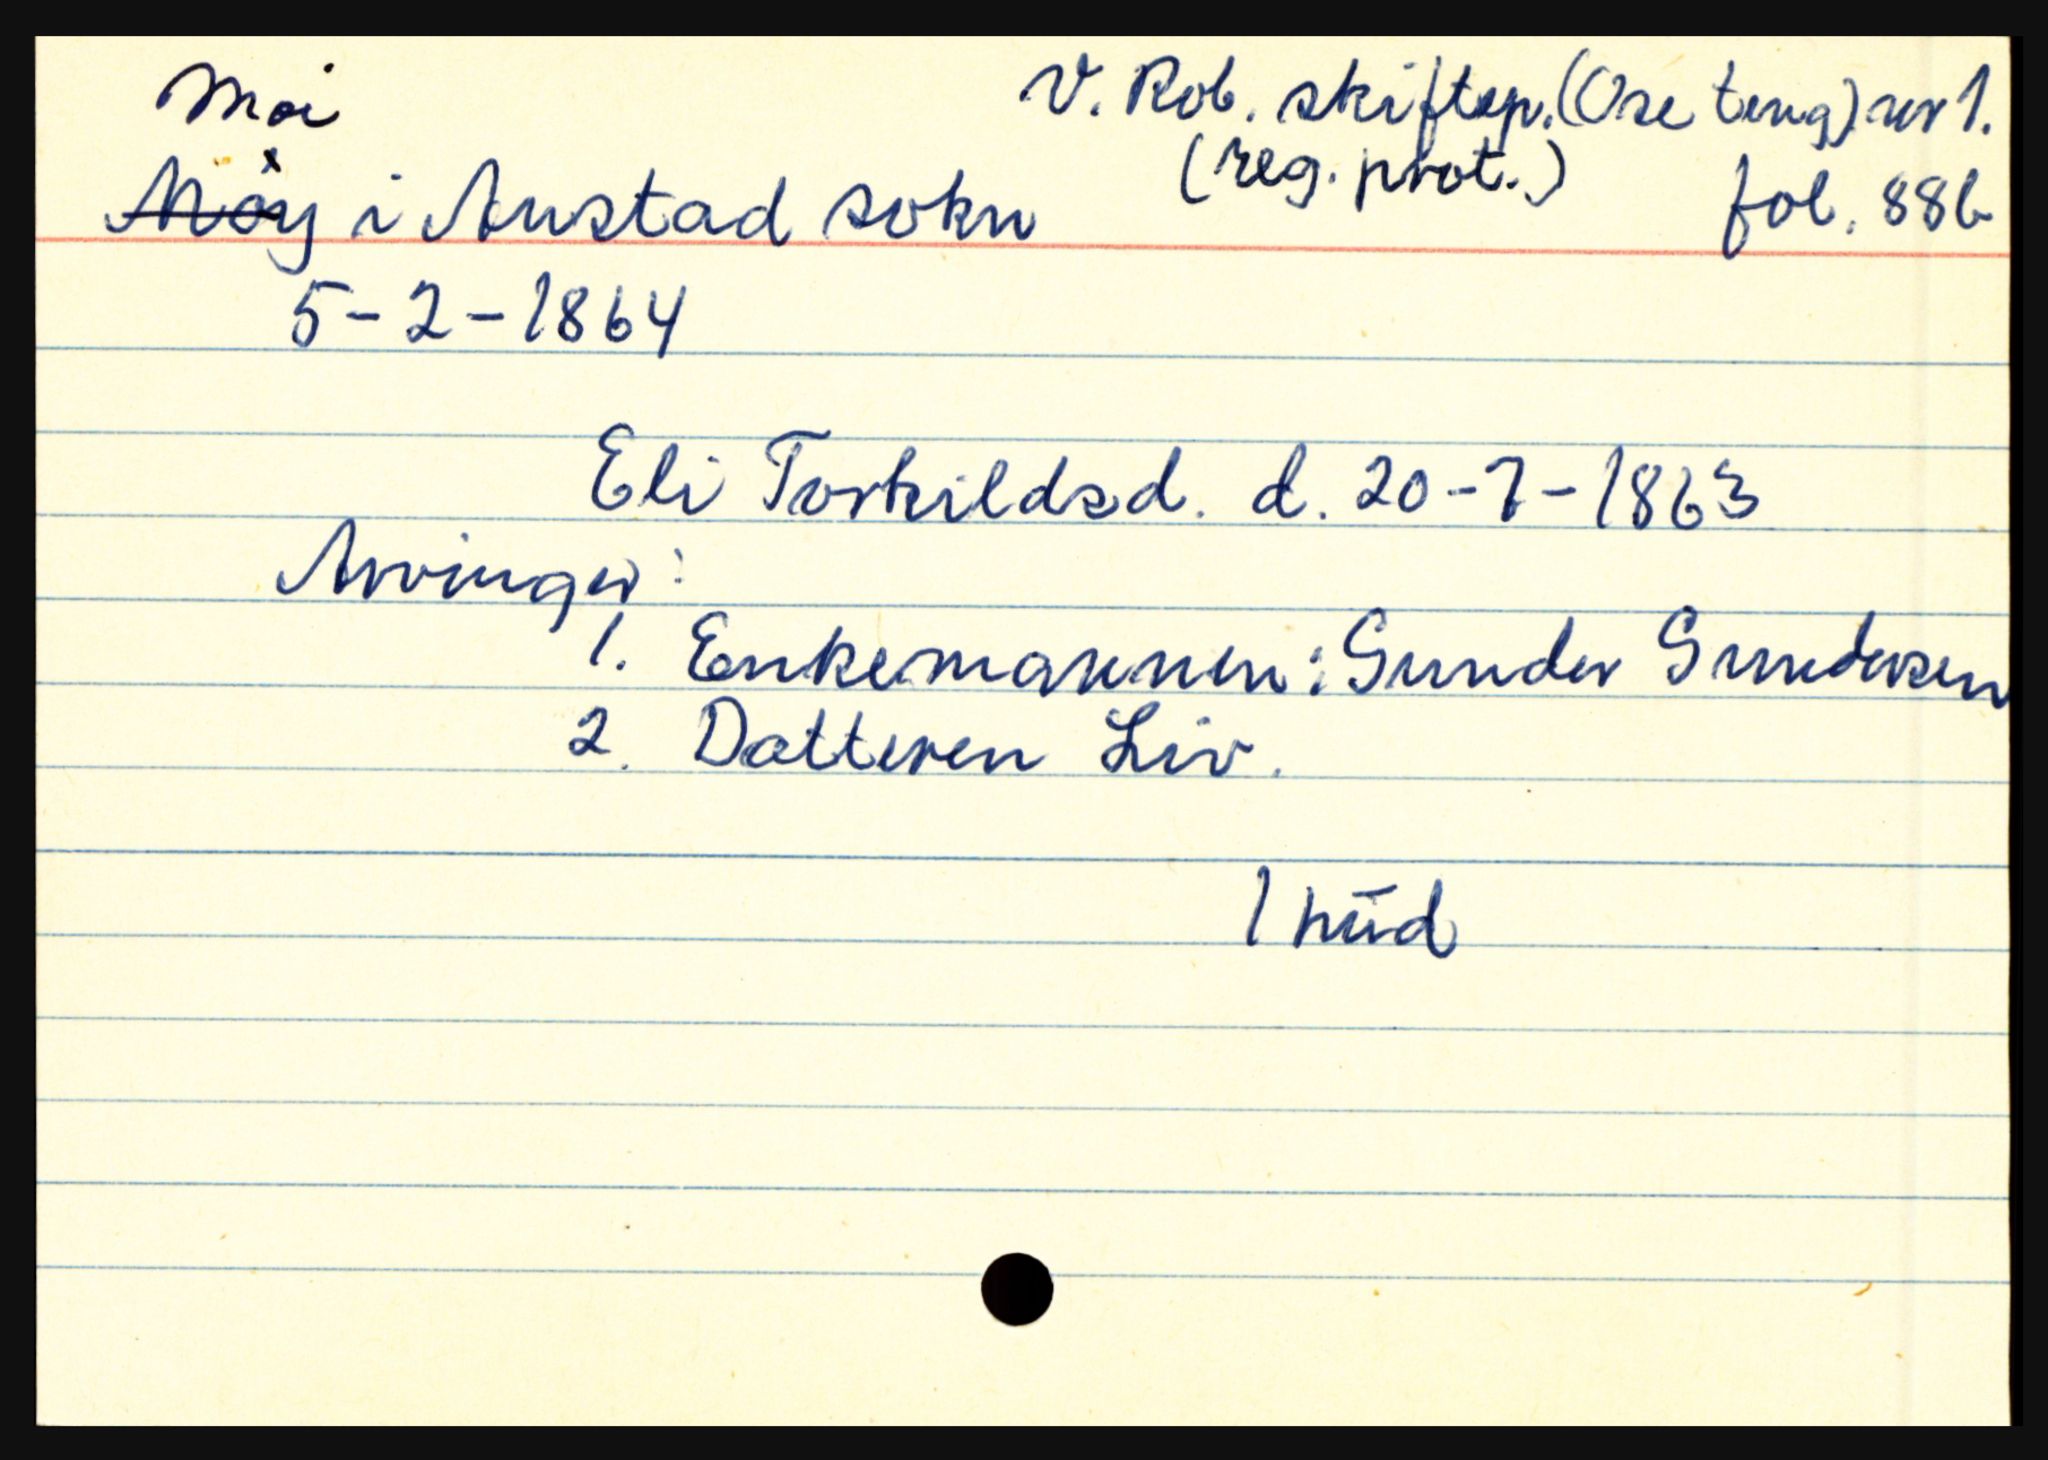 Moi
V. Rob. skiftep. (Ose teng) nr 1.
(reg. prot.)
Möy i Austad sokn
fol. 88b
5-2-1864
Eli Torkildsd. d. 20-7-1863
Arvinger:
1. Enkemannen: Gunder Gundersen
2. Datteren Liv.
1 hud